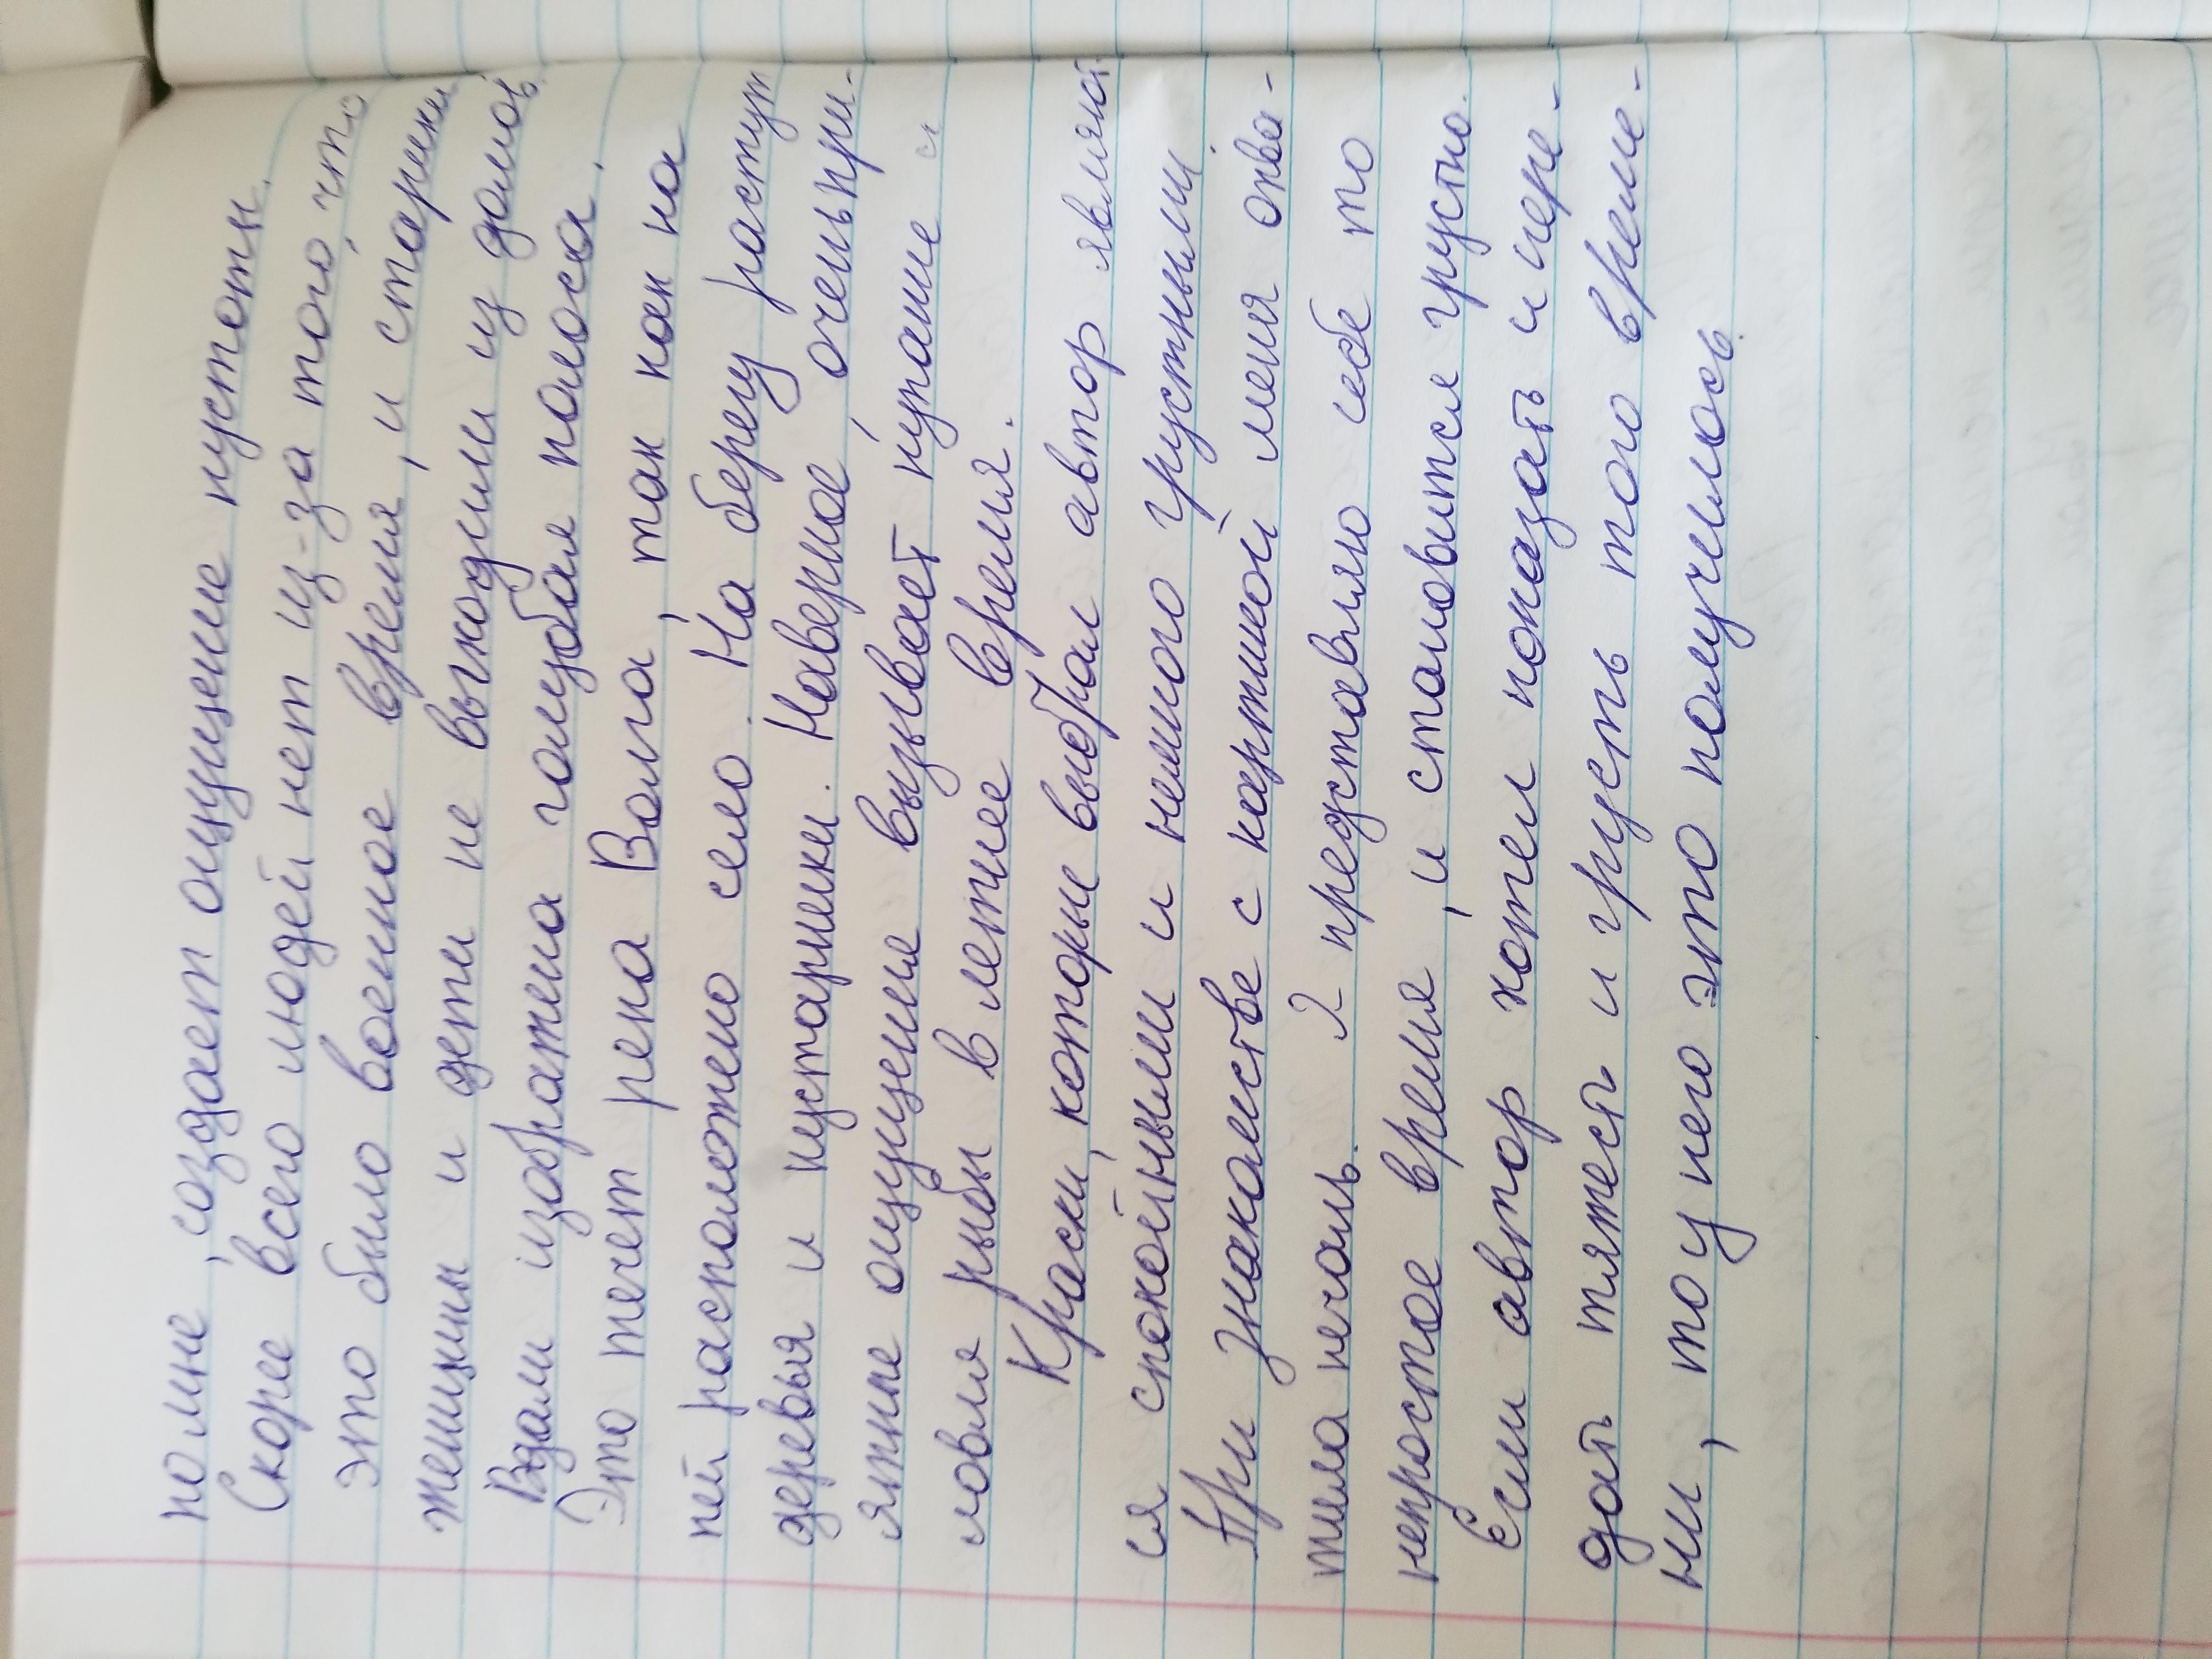 полне, создает ощущение пустоты.
Скорее всего людей нет из-за того, что
это было военное время, и старики
женщины и дети не выходили из домов.
Вдали изображена голубая полоса.
Это течет река Волга, так как на
ней расположено село. На берегу растут
деревья и кустарники. Наверное, очень при-
ятне ощущение вызывает купание и
ловля рыбы в летнее время.
Краски, которые выбрал автор являют
ся спокойными и немного грустными.
При знакомстве с картиной меня охва-
тила печаль. Я представляю себе то
непростое время, и становится грустно.
Если автор хотел показать и пере-
дать тяжесть и грусть того време-
ни, то у него это получилось.